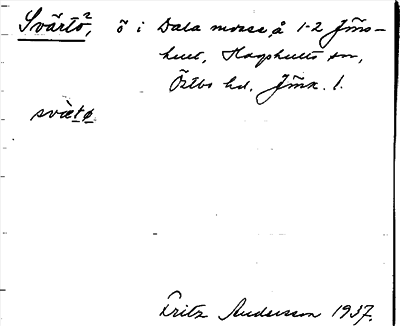 Svärtö², ö i Dala mosse å 1-2 Jms-
hult, Hagshults sn,
Östbo hd, Jmk. l.
svætø
Fritz Andersson 1937.